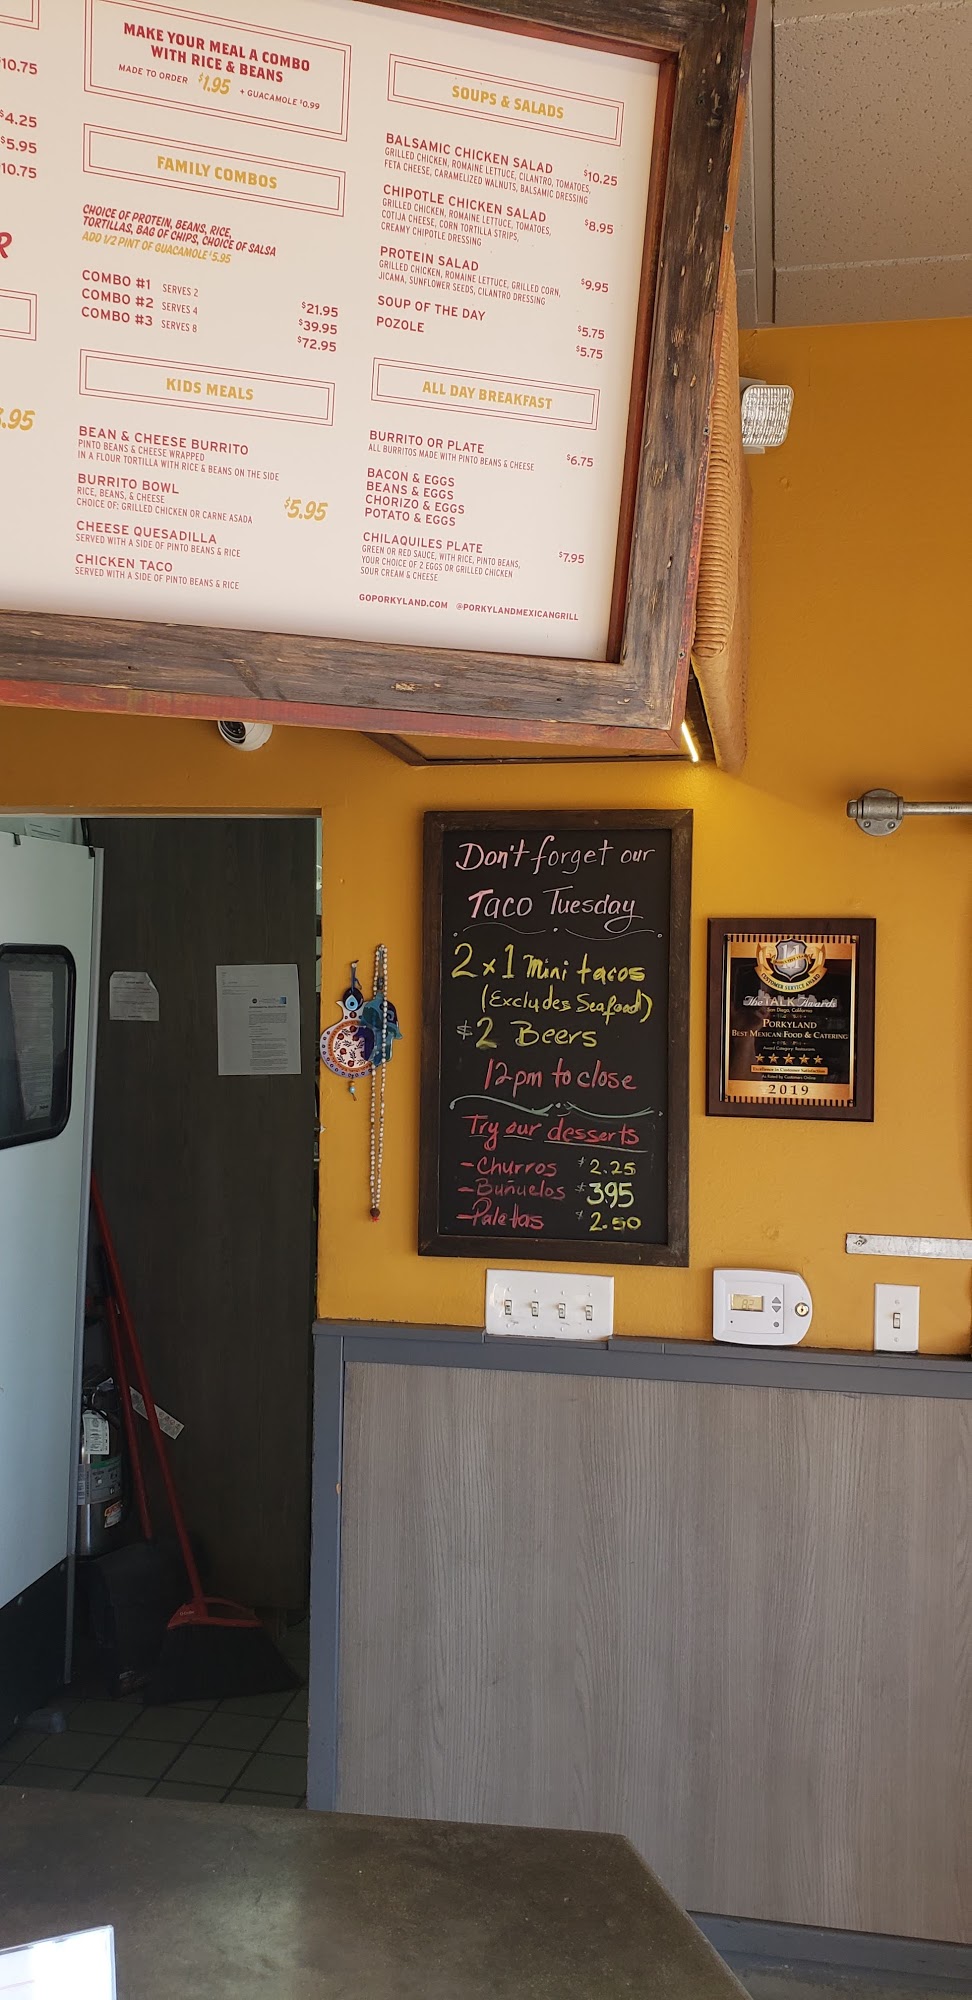 10.75
$4.25
$5.95
10.75
R
.95
MAKE YOUR MEAL A COMBO
WITH RICE & BEANS
MADE TO ORDER $1.95 + GUACAMOLE $0.99
FAMILY COMBOS
CHOICE OF PROTEIN, BEANS, RICE,
TORTILLAS, BAG OF CHIPS, CHOICE OF SALSA
ADD 1/2 PINT OF GUACAMOLE $5.95
COMBO #1 SERVES 2 $21.95
COMBO #2 SERVES 4 $39.95
COMBO #3 SERVES 8 $72.95
KIDS MEALS
BEAN & CHEESE BURRITO
PINTO BEANS & CHEESE WRAPPED
IN A FLOUR TORTILLA WITH RICE & BEANS ON THE SIDE
BURRITO BOWL
RICE, BEANS, & CHEESE
CHOICE OF: GRILLED CHICKEN OR CARNE ASADA
$5.95
CHEESE QUESADILLA
SERVED WITH A SIDE OF PINTO BEANS & RICE
CHICKEN TACO
SERVED WITH A SIDE OF PINTO BEANS & RICE
SOUPS & SALADS
BALSAMIC CHICKEN SALAD $10.25
GRILLED CHICKEN, ROMAINE LETTUCE, CILANTRO, TOMATOES,
FETA CHEESE, CARAMELIZED WALNUTS, BALSAMIC DRESSING
CHIPOTLE CHICKEN SALAD $8.95
GRILLED CHICKEN, ROMAINE LETTUCE, TOMATOES,
COTIJA CHEESE, CORN TORTILLA STRIPS,
CREAMY CHIPOTLE DRESSING
PROTEIN SALAD $9.95
GRILLED CHICKEN, ROMAINE LETTUCE, GRILLED CORN,
JICAMA, SUNFLOWER SEEDS, CILANTRO DRESSING
SOUP OF THE DAY $5.75
POZOLE $5.75
ALL DAY BREAKFAST
BURRITO OR PLATE $6.75
ALL BURRITOS MADE WITH PINTO BEANS & CHEESE
BACON & EGGS
BEANS & EGGS
CHORIZO & EGGS
POTATO & EGGS
CHILAQUILES PLATE $7.95
GREEN OR RED SAUCE, WITH RICE, PINTO BEANS,
YOUR CHOICE OF 2 EGGS OR GRILLED CHICKEN
SOUR CREAM & CHEESE
GOPORKYLAND.COM @PORKYLANDMEXICANGRILL
Don't forget our
Taco Tuesday
2x1 Mini tacos
(Excludes Seafood)
$2 Beers
12pm to close
Try our desserts
-Churros $2.25
-Buñuelos $3.95
-Paletas $2.50
CUSTOMER SERVICE AWARD
The TALK Awards
San Diego, California
PORKYLAND
BEST MEXICAN FOOD & CATERING
Award Category: Restaurants
Excellence in Customer Satisfaction
As Rated by Customers Online
2019
82